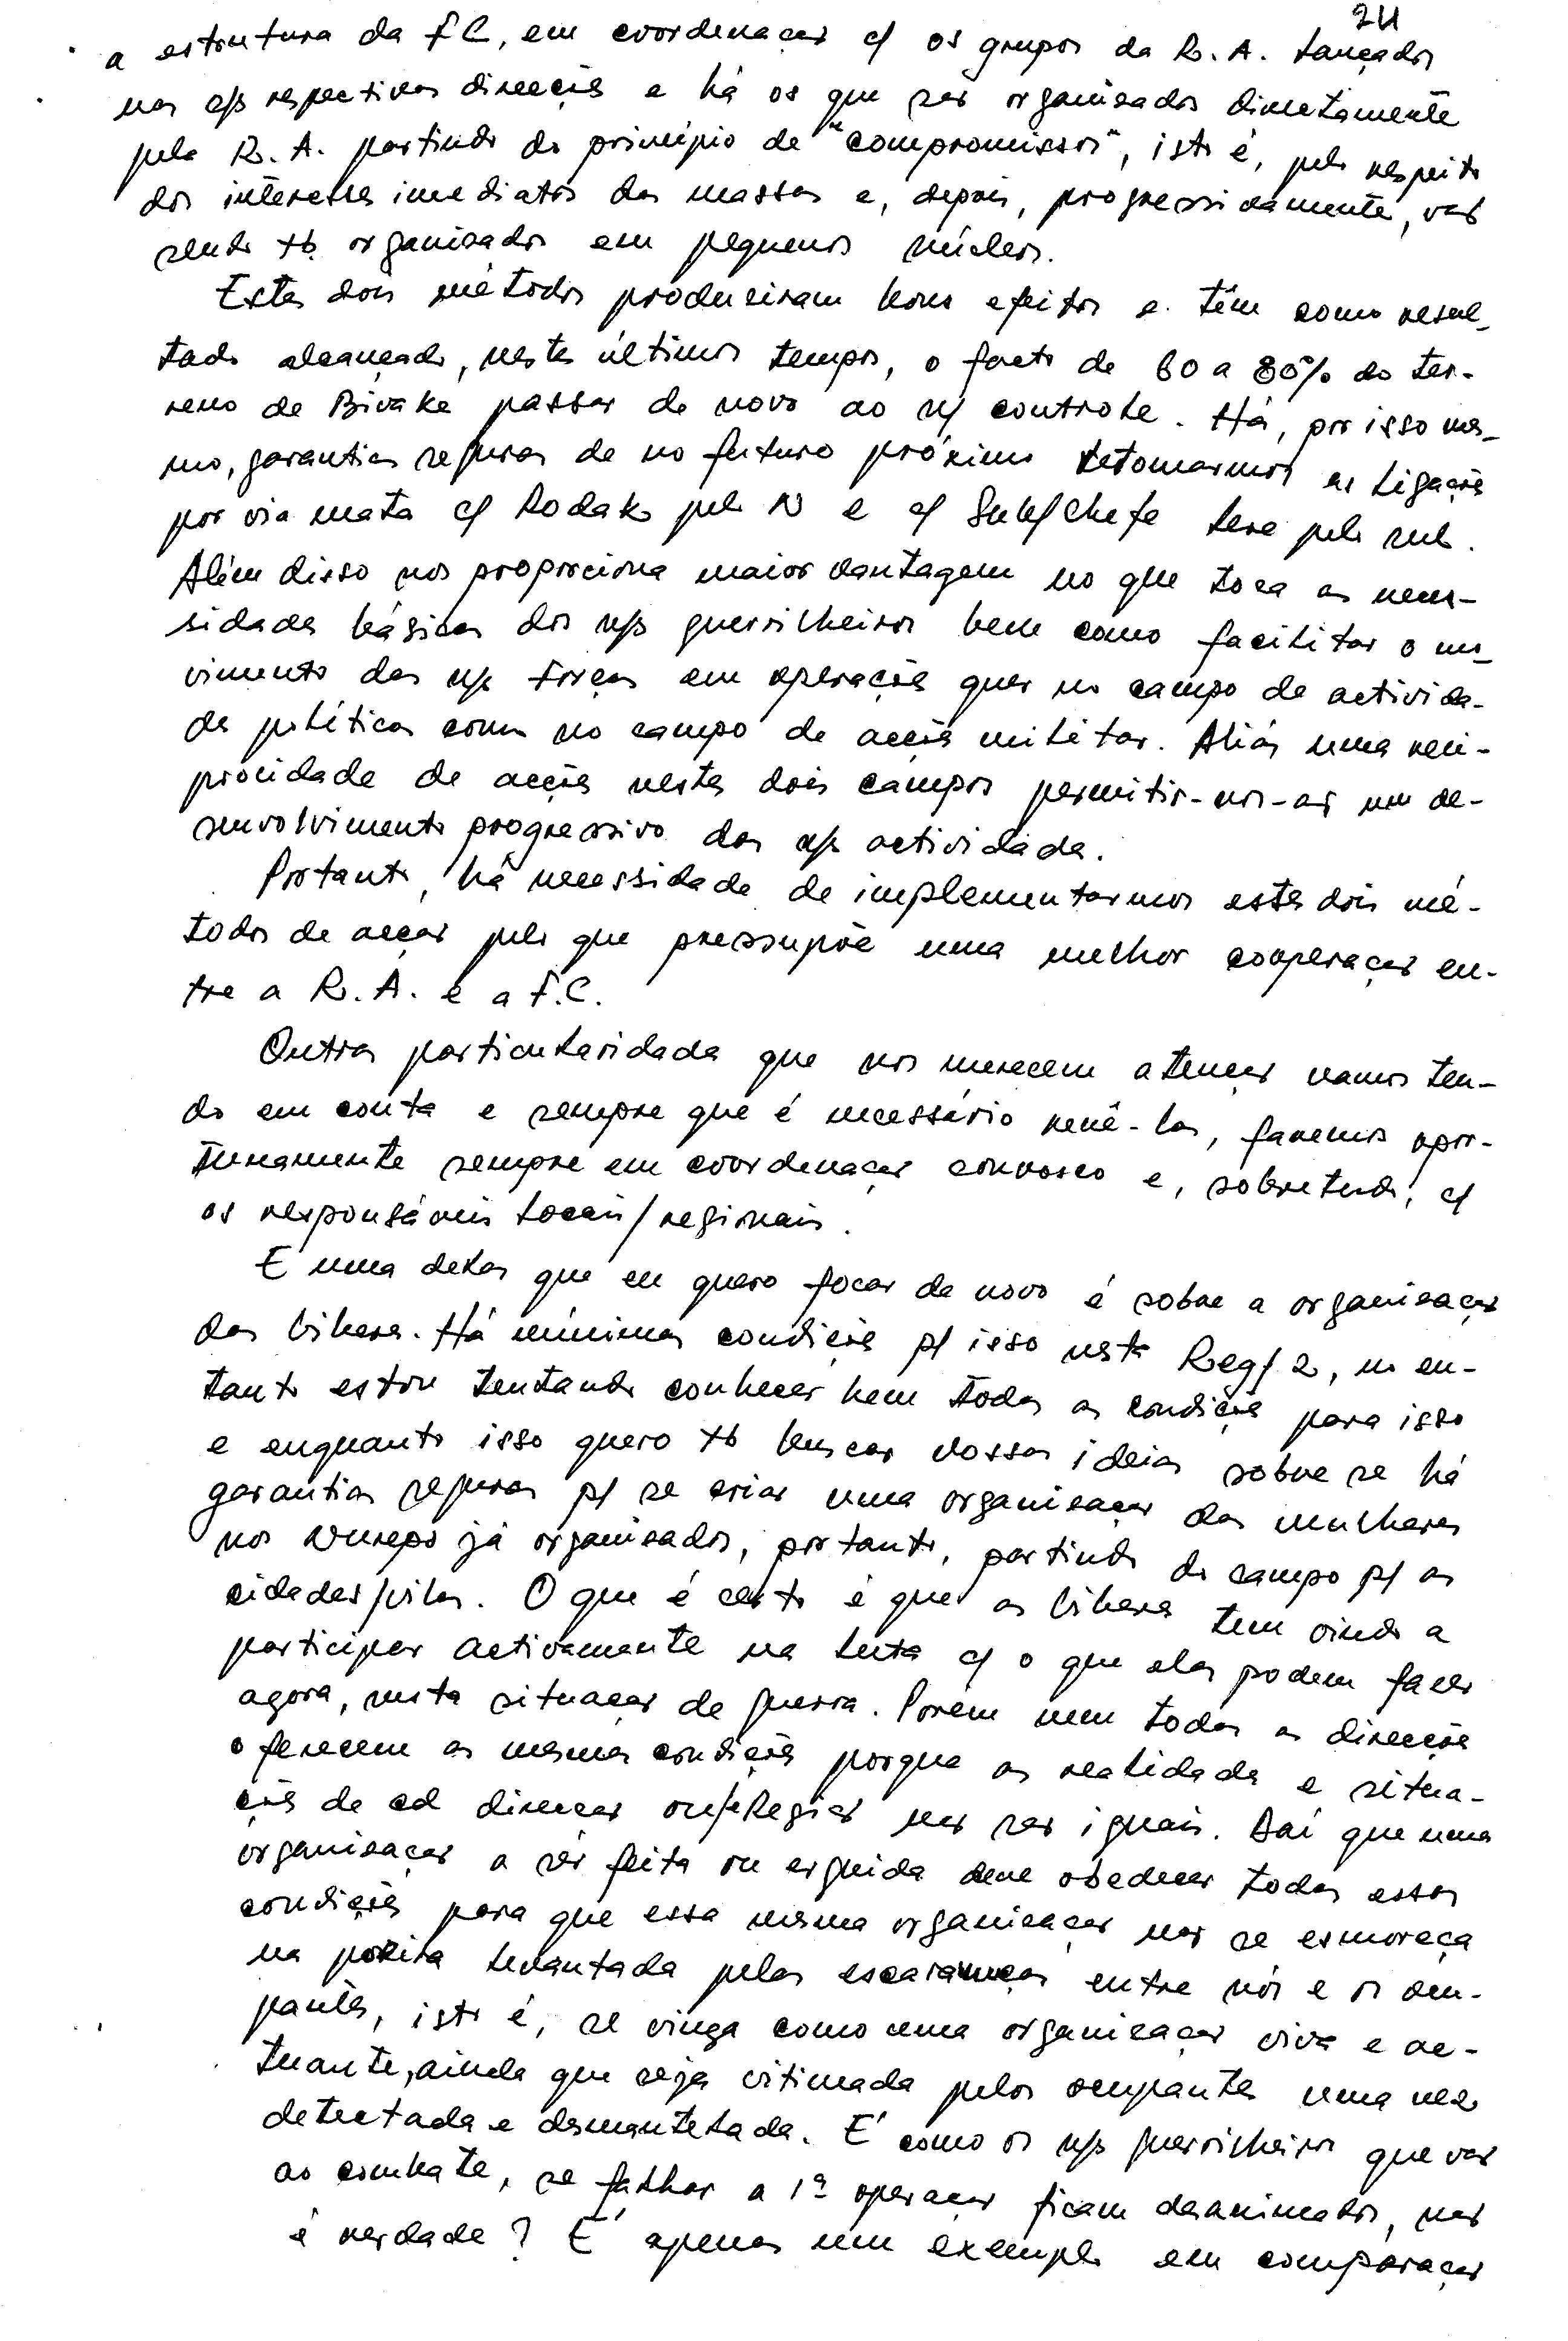 24
a estrutura da FC, em coordenação c/ os grupos da R. A. lançados
nas n/s respectivas direcções e há os que são organisados directamente
pela R. A. partindo do princípio de "compromissos", isto é, pelo respeito
dos interesses imediatos das massas e, depois, progressivamente, vão
sendo tb organisados em pequenos núcleos.
Estes dois métodos produziram bons efeitos e têm como resul-
tado alcançado, nestes últimos tempos, o facto de 60 a 80% do ter-
reno de Bivake passar de novo ao n/ controle. Há, por isso mes-
mo, garantias seguras de no futuro próximo retomarmos as ligações
por via mata c/ Rodak pelo N e c/ Sub/Chefe Lere pelo sul.
Além disso nos proporciona maior vantagem no que toca as neces-
sidades básicas dos n/s guerrilheiros bem como facilitar o mo-
vimento das n/s Forças em operações quer no campo de activida-
des políticas como no campo de acções militar. Aliás uma reci-
procidade de acções nestes dois campos permitir-nos-ão um de-
senvolvimento progressivo das n/s actividades.
Portanto, há necessidade de implementarmos estes dois mé-
todos de acção pelo que pressupõe uma melhor cooperação en-
tre a R. A. e a F.C.
Outras particularidades que nos merecem atenção vamos ten-
do em conta e sempre que é necessário revê-las, faremos opor-
tunamente sempre em coordenação convosco e, sobretudo, c/
os responsáveis locais/regionais.
E uma delas que eu quero focar de novo é sobre a organisação
das biheres. Há mínimas condições p/ isso nesta Reg/2, no en-
tanto estou tentando conhecer bem todas as condições para isso
e enquanto isso quero tb buscar vossas ideias sobre se há
garantias seguras p/ se criar uma organisação das mulheres
nos Nureps já organisados, portanto, partindo do campo p/ as
cidades/vilas. O que é certo é que as biheres tem vindo a
participar activamente na luta c/ o que elas podem fazer
agora, nesta situação de guerra. Porém nem todas as direcções
oferecem as mesmas condições porque as realidades e situa-
ções de cd direcção ou/e Região não são iguais. Daí que uma
organisação a ser feita ou erguida deve obedecer todas essas
condições para que essa mesma organisação não se esmoreça
na poeira levantada pelas escaramuças entre nós e os ocu-
pantes, isto é, se vinga como uma organisação viva e ac-
tuante, ainda que seja vitimada pelos ocupantes uma vez
detectada e desmantelada. É como os n/s guerrilheiros que vão
ao combate, se falhar a 1ª operação ficam desanimados, não
é verdade? É apenas um exemplo em comparação